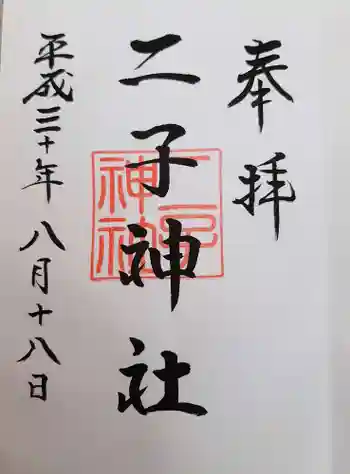 奉拝
二子神社
二子神社
平成三十年八月十八日